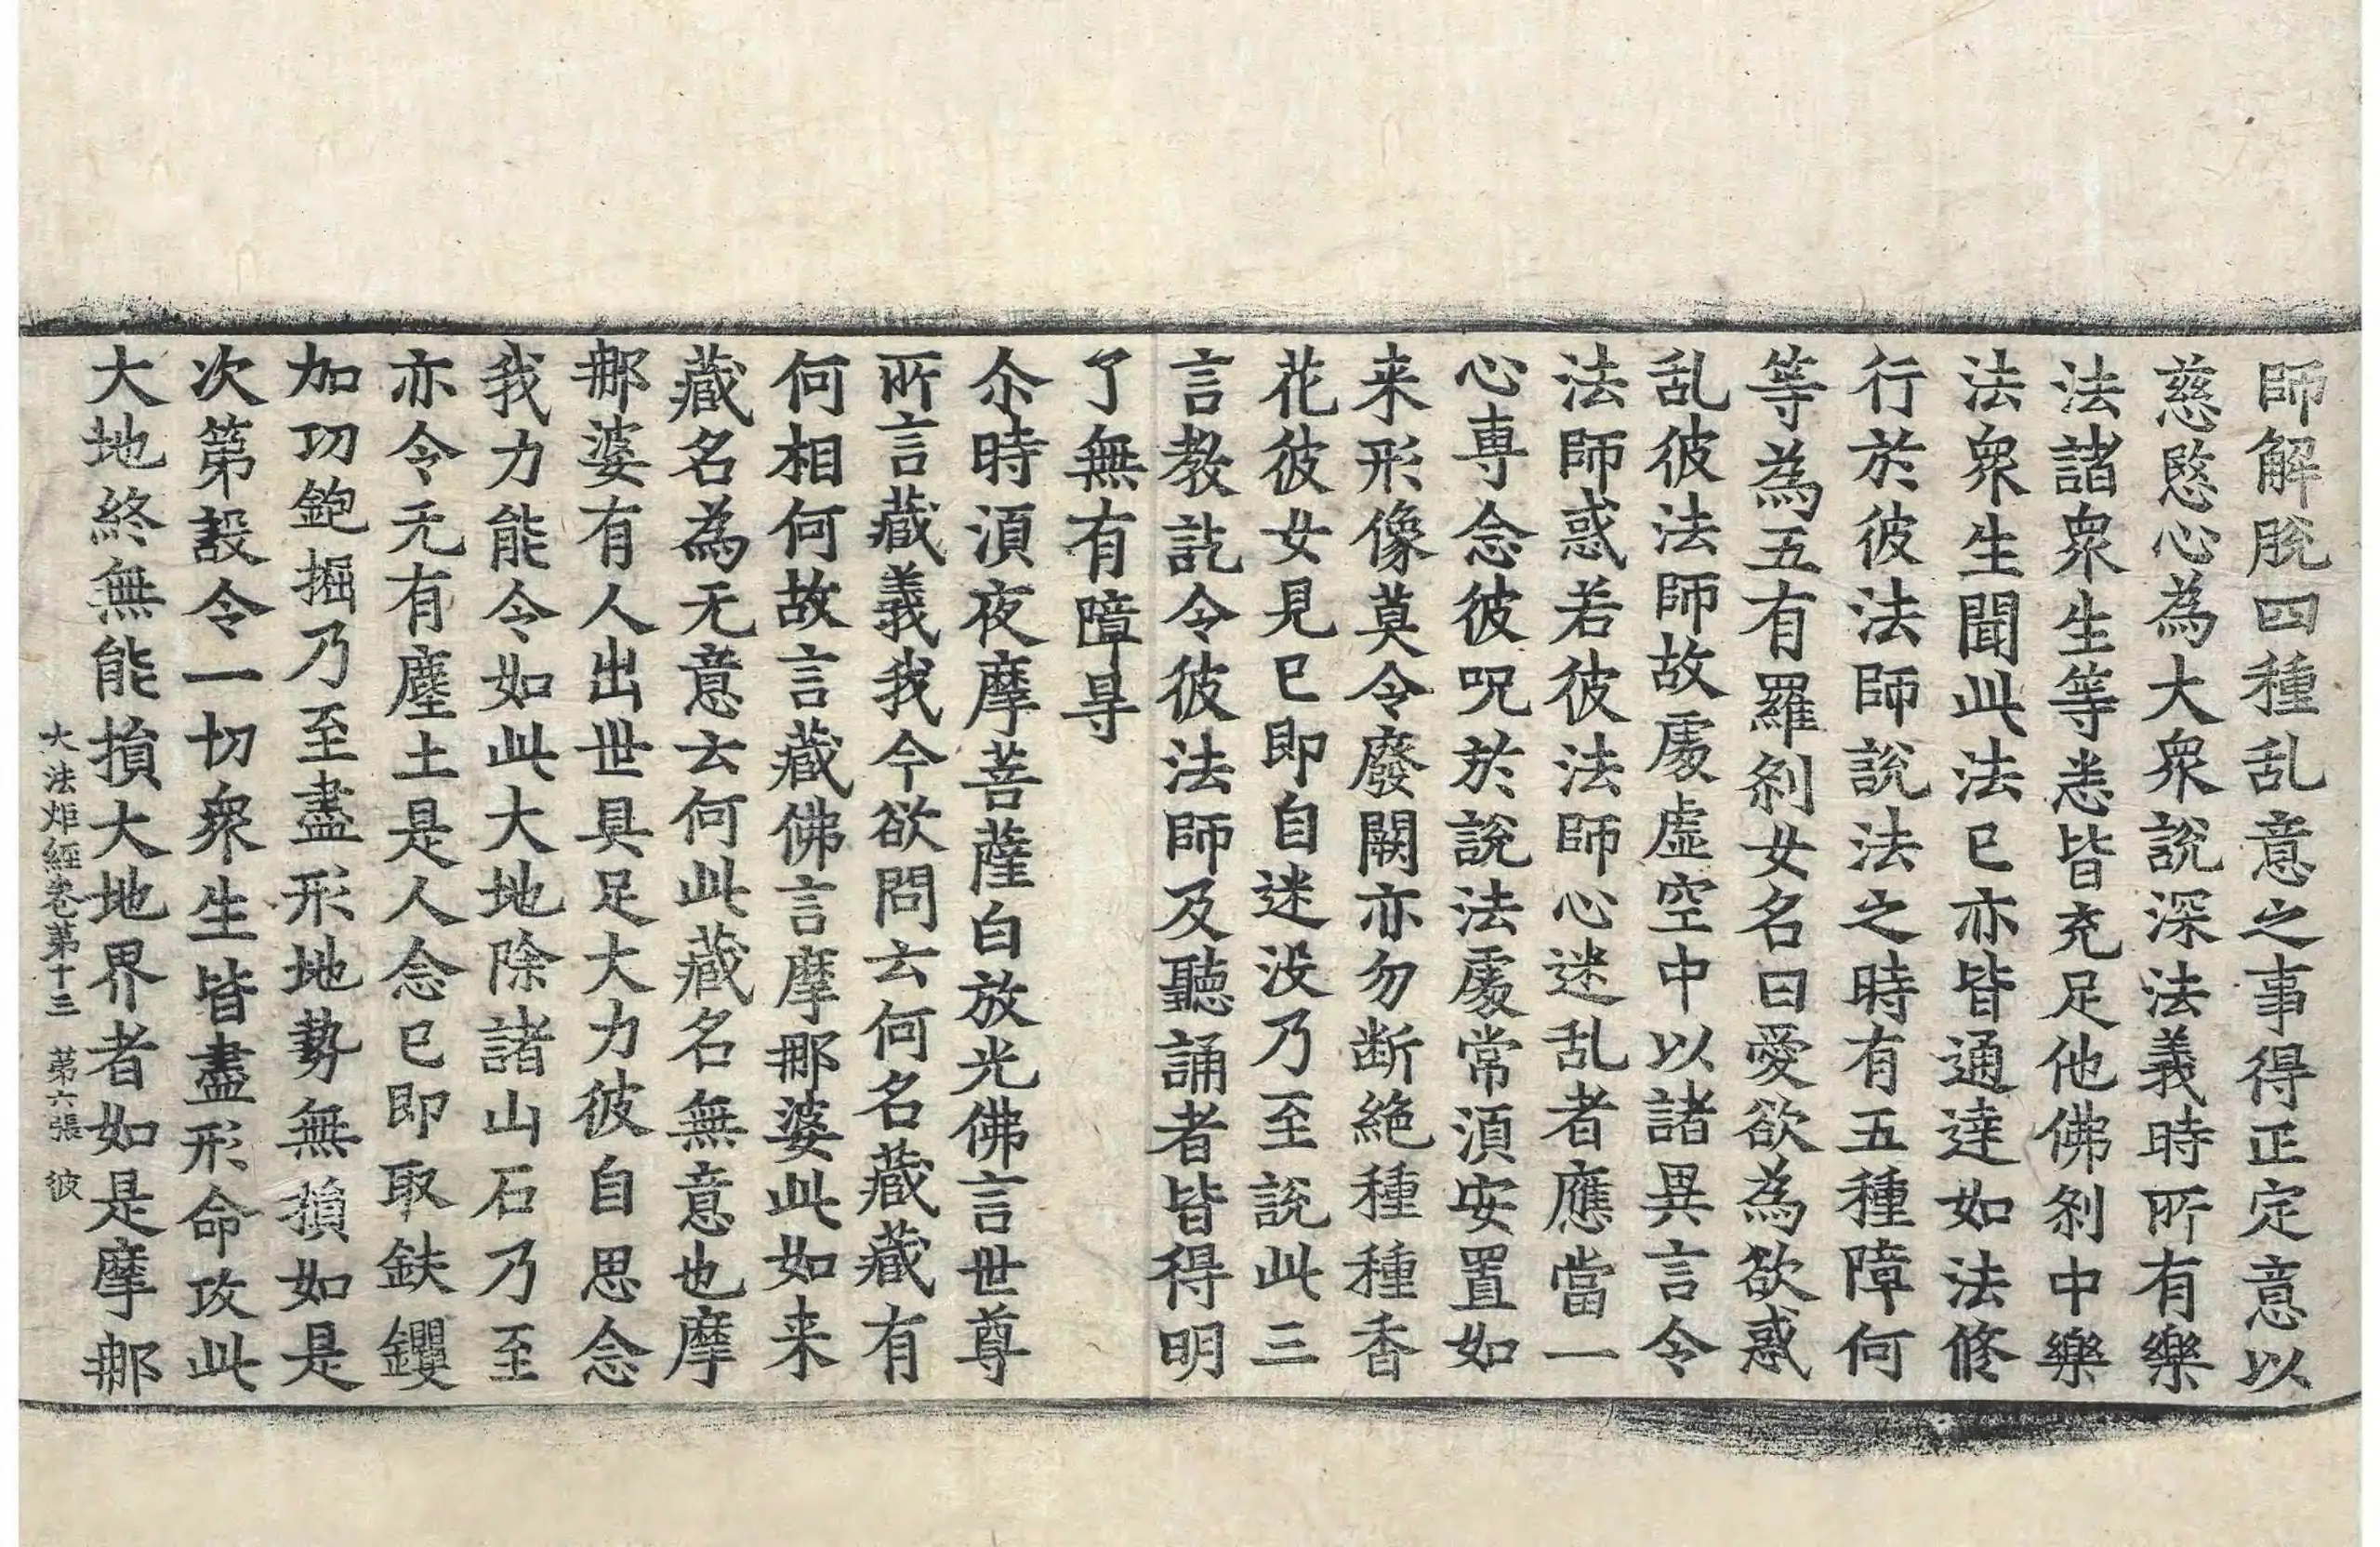 師解脫四種乱意之事得正定意以
慈愍心為大衆說深法義時所有樂
法諸衆生等悉皆充足他佛刹中樂
法衆生聞此法已亦皆通達如法修
行於彼法師說法之時有五種障何
等為五有羅刹女名曰愛欲為欲惑
乱彼法師故處虛空中以諸異言令
法師惑若彼法師心迷乱者應當一
心專念彼呪於說法處常湏安置如
来形像莫令廢闕亦勿断絶種種香
花彼女見已即自迷没乃至說此三
言教訖令彼法師及聽誦者皆得明
了無有障㝵
尒時湏夜摩菩薩白放光佛言世尊
所言藏義我今欲問云何名藏藏有
何相何故言藏佛言摩那婆此如来
藏名為无意云何此藏名無意也摩
那婆有人出世具足大力彼自思念
我力能令如此大地除諸山石乃至
亦令无有塵土是人念已即取鈇钁
加功鉋掘乃至盡形地勢無損如是
次第設令一切衆生皆盡形命攻此
大地終無能損大地界者如是摩那
大法炬經卷第十三　第六張　彼